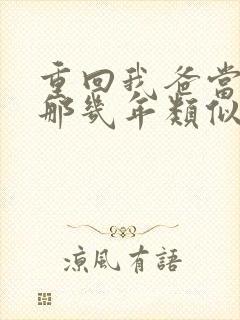 重回我爸當
那幾年類似
涼風有語